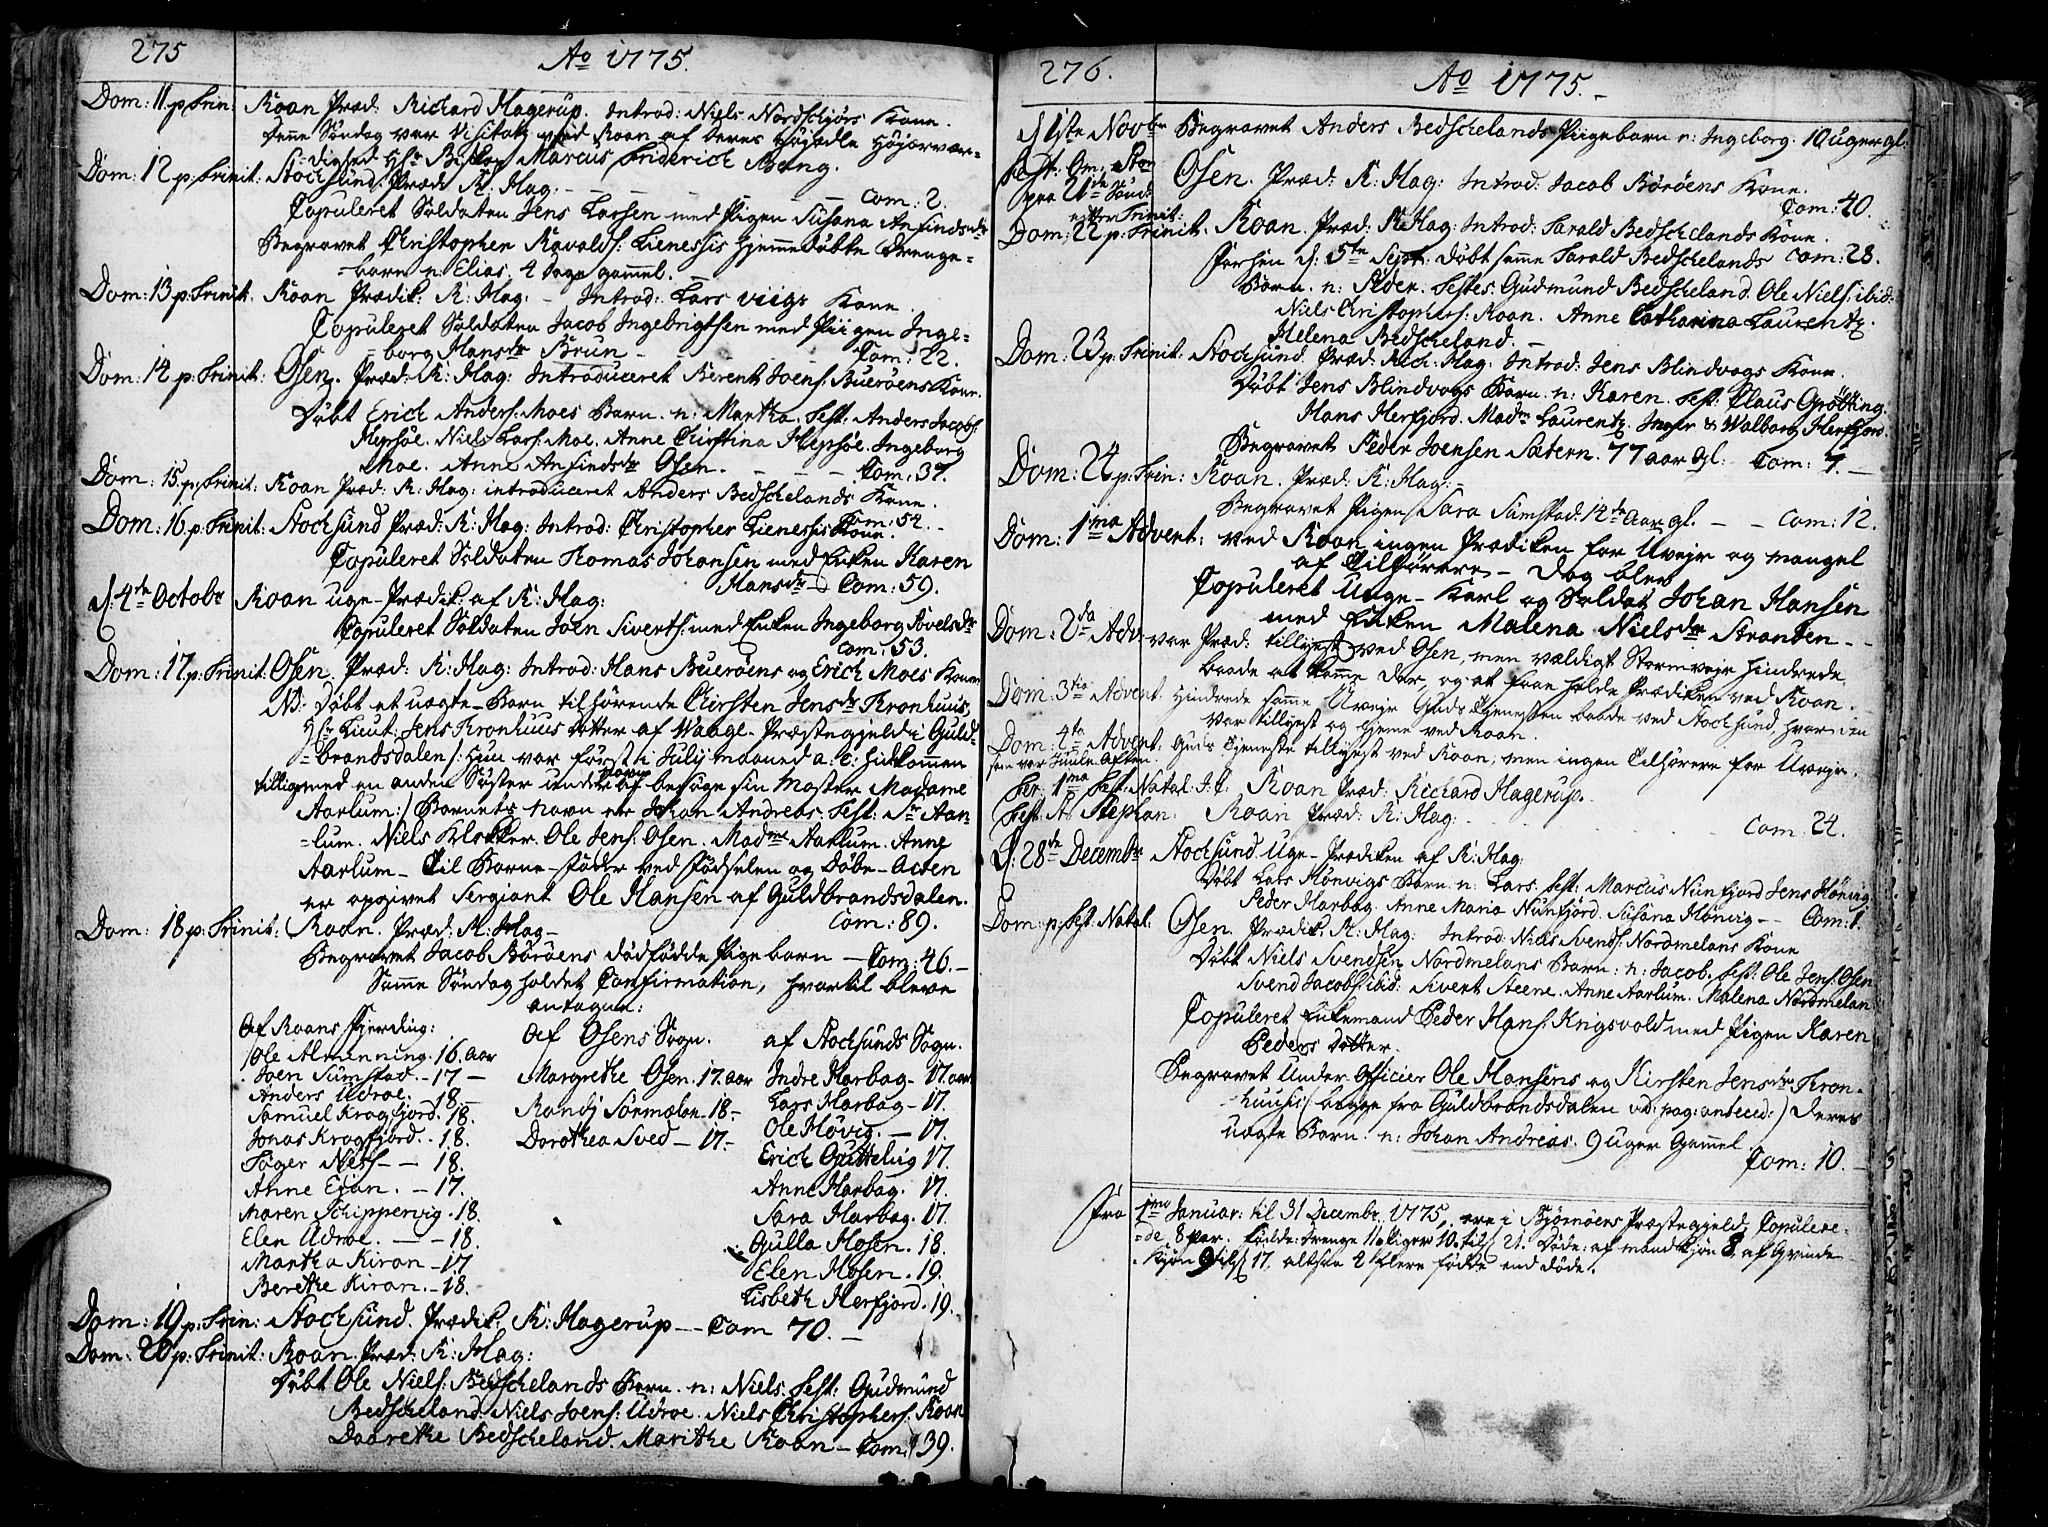 275
Ao 1775.
Dom: 11. p. Trin: Roan Præd: Richard Hagerup. Introd: Niels Nordschjörs Kone.
Denne Söndag var Visitatz ved Roan af Deres Höjædle Höjærvær-
=dighed Hr Biskop Marcus Friderich Bang.
Dom: 12 p: Trinit: Stochsund. Præd: R: Hag: – – – – – Com: 2.
Copuleret Soldaten Jens Larsen med Pigen Susana Anfindsdr
Begravet Christopher Havalds: Lienessis Hjemmedöbte Drenge=
=barn n: Elias. 4 Dage gammel.
Dom: 13 p: Trinit: Roan Prædik: R: Hag: – Introd: Lars Viigs Kone.
Copuleret Soldaten Jacob Ingebrigtsen med Piigen Inge=
=borg Hansdr Brun – – – – Com: 22.
Dom: 14 p: Trinit: Osen. Præd: R: Hag: Introduceret Berent Joens: Bueröens Kone.
Döbt Erich Anders: Moes Barn. n: Martha. Test: Anders Jacobs:
Hepsöe. Niels Lars: Moe. Anne Christina Hepsöe. Ingeborg
Moe. Anne Anfindsdr Osen. – – – Com: 37.
Dom: 15. p: Trinit: Roan Præd: R: Hag: introduceret Anders Bedschelands Kone.
Com: 54.
Dom: 16. p: Trinit: Stochsund Præd: R: Hag: Introd: Christopher Lienessis Kone.
Copuleret Soldaten Thomas Johansen med Enken Karen
Hansdr – Com: 59.
d: 4de Octobr Roan uge-Prædik: af R: Hag:
Copuleret Soldaten Joen Siverts: med Enken Ingeborg Povelsdr
Com: 53.
Dom: 17. p: Trinit: Osen. Præd: R: Hag: Introd: Hans Bueröens og Erich Moes Koner
NB: Döbt et uægte-Barn tilhörende Chirsten Jensdr Kronhuus,
Hr Lieut: Jens Kronhuus datter af Waage-Præstegjeld i Guld=
=brandsdalen /: Hun var förest i Julij maaned a: c: hidkommen
tilligemed en anden Söster under at besöge sin Moster Madame
Aarlum :/ Barnets navn er Johan Andreas. Test: Sr Aar=
=lum. Niels Klokker. Ole Jens: Osen. Madme Aarlum. Anne
Aarlum – Til Barne-Fader ved Födselen og Döbe-Acten
er opgivet Sergiant Ole Hansen af Guldbrandsdalen.
Com: 89.
Dom: 18 p: Trinit: Roan. Præd: R: Hag –
Begravet Jacob Böröens dödfödde Pigebarn – Com: 46. –
Samme Söndag holdet Confirmation, hvortil bleve
antagne:
Af Roans Fjerding:
Ole Almenning. 16. aar
Joen Sumstad. – 17 –
Anders Udroe. – 18. –
Samuel Kragfjord. 18.
Jonas Kragfjord. . 18.
Ness – – 18.
Anne Eian. – 17.
Maren Schippervig. 18.
Elen Udroe. – – 18.
Martha Kiran – 17
Berethe Kiran. – 18.
af Osens Sogn.
Margrethe Osen. 17. aar
Randj Sörmelan – 18 –
Dorothea Sved – 17. –
af Stochsunds Sogn.
Indre Harbag – 17. aar.
Lars Harbag – 17.
Ole Hövig. – 17.
Erich Guttelvig 17.
Anne Harbag. 17.
Sara Harbag. 17.
Gulla Hosen. 18.
Elen Hosen. 19.
Lisbeth Herfjord. 19.
Dom: 19 p: Trin: Stochsund. Prædik: R: Hagerup – – Com 70. –
Dom: 20 p: Trinit: Roan. Præd: R: Hag:
Döbt Ole Niels: Bedschelands Barn. n: Niels. Test: Gudmund
Bedscheland. Niels Joens: Udroe. Niels Christophers: Roan
Daarethe Bedscheland. Marithe Roan – Com: 39.
276.
Ao 1775. –
d 1ste Novbr Begravet Anders Bedschelands Piigebarn n: Ingeborg. 10 uger gl.
Fest: Om: Stor
paa 21de Sönd:
efter Trinit: Osen. Præd: R: Hag: Introd: Jacob Böröens Kone.
Com: 40.
Dom: 22 p: Trinit. Roan. Præd: R: Hag: Introd: Harald Bedschelands Kone.
Forhen d: 5te Sept: döbt samme Harald Bedschelands Com: 28.
Barn. n: Peder. Testes: Gudmund Bedscheland. Ole Niels: ibid:
Niels Christophers: Roan. Anne Catharina Laurentz.
Helena Bedscheland. –
Dom: 23 p: Trinit: Stochsund. Præd: Rich: Hag: Introd: Jens Blindvogs Kone.
Döbt Jens Blindvogs Barn. n: Karen. Test: Claus Grötting.
Hans Herfjord. Madm Laurentz. Inger & Walborg Herfjord.
Begravet Peder Joensen Sætern. 77 aar gl: – Com: 7. –
Dom: 24 p: Trin: Roan. Præd: R: Hag: –
Begravet Pigen Sara Sumstad. 14 Aar gl. – – Com: 12.
Dom: 1ma Advent: ved Roan ingen Prædiken for Uvejr og mangel
af Tilhörere – Dog blev
Copuleret Unge-Karl og Soldat Johan Hansen
med Enken Malena Nielsdr Stranden – –
Dom: 2da Adv: var Præd: tillyest ved Osen, men vældigt Stormvejr hindrede,
baade at komme der, og at faae holde Prædiken ved Roan.
Dom: 3tia Advent. hindrede samme Uvejr Guds Tjenesten baade ved Stochsund, hvor den
var tillyest og hjeme ved Roan.
Dom: 4ta Advent: Guds Tjeneste tillyest ved Roan, men ingen Tilhörere for Uvejr.
som var Juule-Aften.
Fer: 1ma Fest: Natal. J. C. Roan Præd: Richard Hagerup.
Fest: St: Stephan: Roan Præd: R: Hag: – Com: 24.
d: 28de Decembr Stochsund Uge-Prædiken af R: Hag:
Döbt Lars Hönvigs Barn n: Lars. Test: Marcus Nünfjord. Jens Hönvig.
Peder Harbag. Anne Maria Nünfjord. Susana Hönvig – – Com: 1.
Dom: p: Fest: Natal: Osen. Prædik: R: Hag: Introd: Niels Svends: Nordmelans Kone
Döbt Niels Svendsen Nordmelans Barn: n: Jacob. Test: Ole Jens: Osen
Svend Jacobs: ibid: Sivert Steene. Anne Aarlum. Malena Nordmelan
Copuleret Enkemand Peder Hans: Krigsvold med Pigen Karen
Peders Datter.
Begravet Under Officier Ole Hansens og Kirsten Jensdr Kron=
=huuses (begge fra Guldbrandsdalen vid: pag: anteced:) Deres
uægte Barn: n: Johan Andreas. 9 Uger Gammel.
Com: 10. –
Fra 1mo Januar: til 31 Decembr. 1775, ere i Björnöens Præstegjeld, Copulere=
=de 8 Par. Födde: Drenge 11. Piger 10. tils: 21. Döde: af mandkjön 8. af Qvinde=
=Kjön 9. tils: 17. altsaa 4 flere födde end döde.